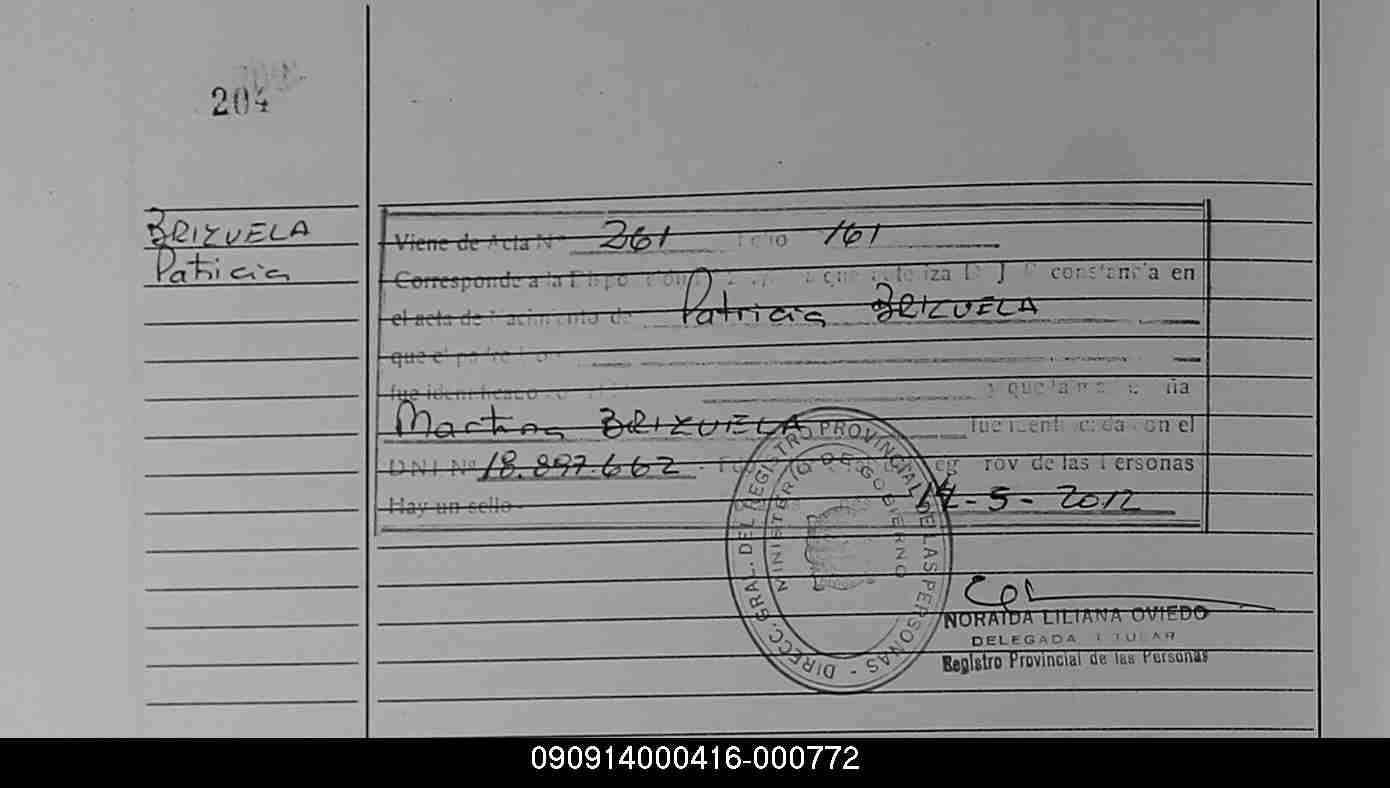 204
BRIZUELA
Patricia
Viene de Acta Nº 261 Folio 161
Corresponde a la que autoriza constancia en
el acta de Nacimiento de Patricia BRIZUELA
que el padre
fue identificado y que la
Martina BRIZUELA fue identificada con el
DNI Nº 18.897.662 de las Personas
Hay un sello - 5 - 2012
DIRECC. GRAL. DEL REGISTRO PROVINCIAL DE LAS PERSONAS -
MINISTERIO DE GOBIERNO
NORAIDA LILIANA OVIEDO
DELEGADA TITULAR
Registro Provincial de las Personas
090914000416-000772